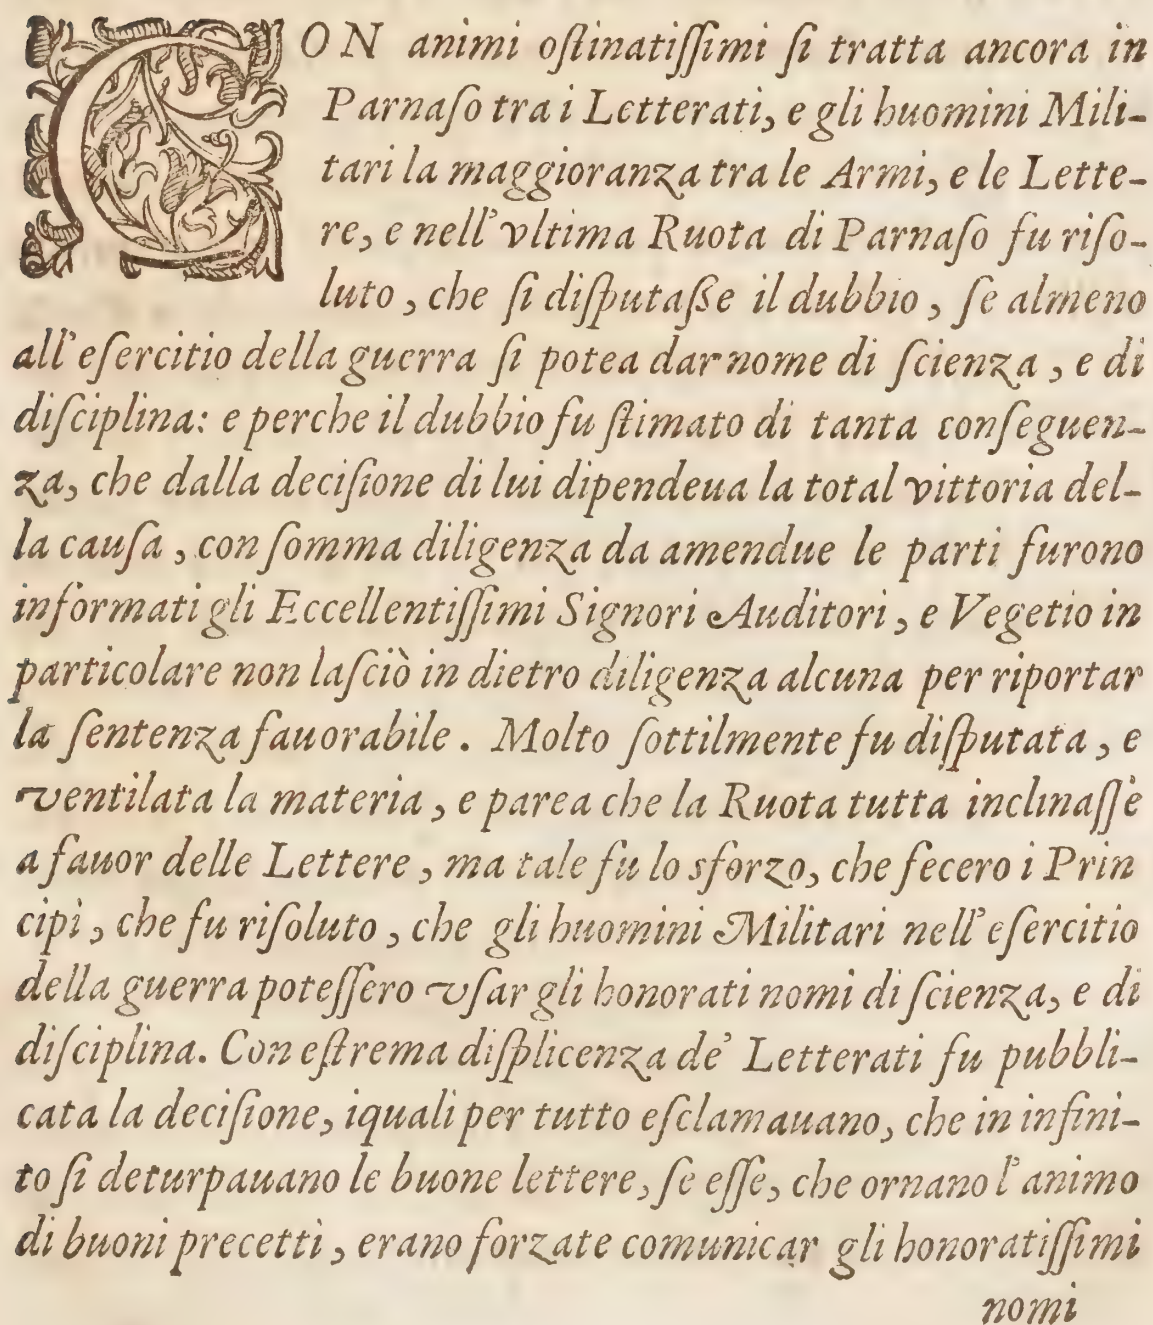 CON animi oſtinatiſſimi ſi tratta ancora in
Parnaſo tra i Letterati, e gli huomini Mili-
tari la maggioranza tra le Armi, e le Lette-
re, e nell'vltima Ruota di Parnaſo fu riſo-
luto, che ſi diſputaſſe il dubbio, ſe almeno
all'eſercitio della guerra ſi potea dar nome di ſcienza, e di
diſciplina: e perche il dubbio fu ſtimato di tanta conſeguen-
za, che dalla deciſione di lui dipendeua la total vittoria del-
la cauſa, con ſomma diligenza da amendue le parti furono
informati gli Eccellentiſſimi Signori Auditori, e Vegetio in
particolare non laſciò in dietro diligenza alcuna per riportar
la ſentenza fauorabile. Molto ſottilmente fu diſputata, e
ventilata la materia, e parea che la Ruota tutta inclinaſſe
a fauor delle Lettere, ma tale fu lo sforzo, che fecero i Prin
cipi, che fu riſoluto, che gli huomini Militari nell'eſercitio
della guerra poteſſero vſar gli honorati nomi di ſcienza, e di
diſciplina. Con eſtrema diſplicenza de' Letterati fu pubbli-
cata la deciſione, iquali per tutto eſclamauano, che in infini-
to ſi deturpauano le buone lettere, ſe eſſe, che ornano l'animo
di buoni precetti, erano forzate comunicar gli honoratiſſimi
nomi